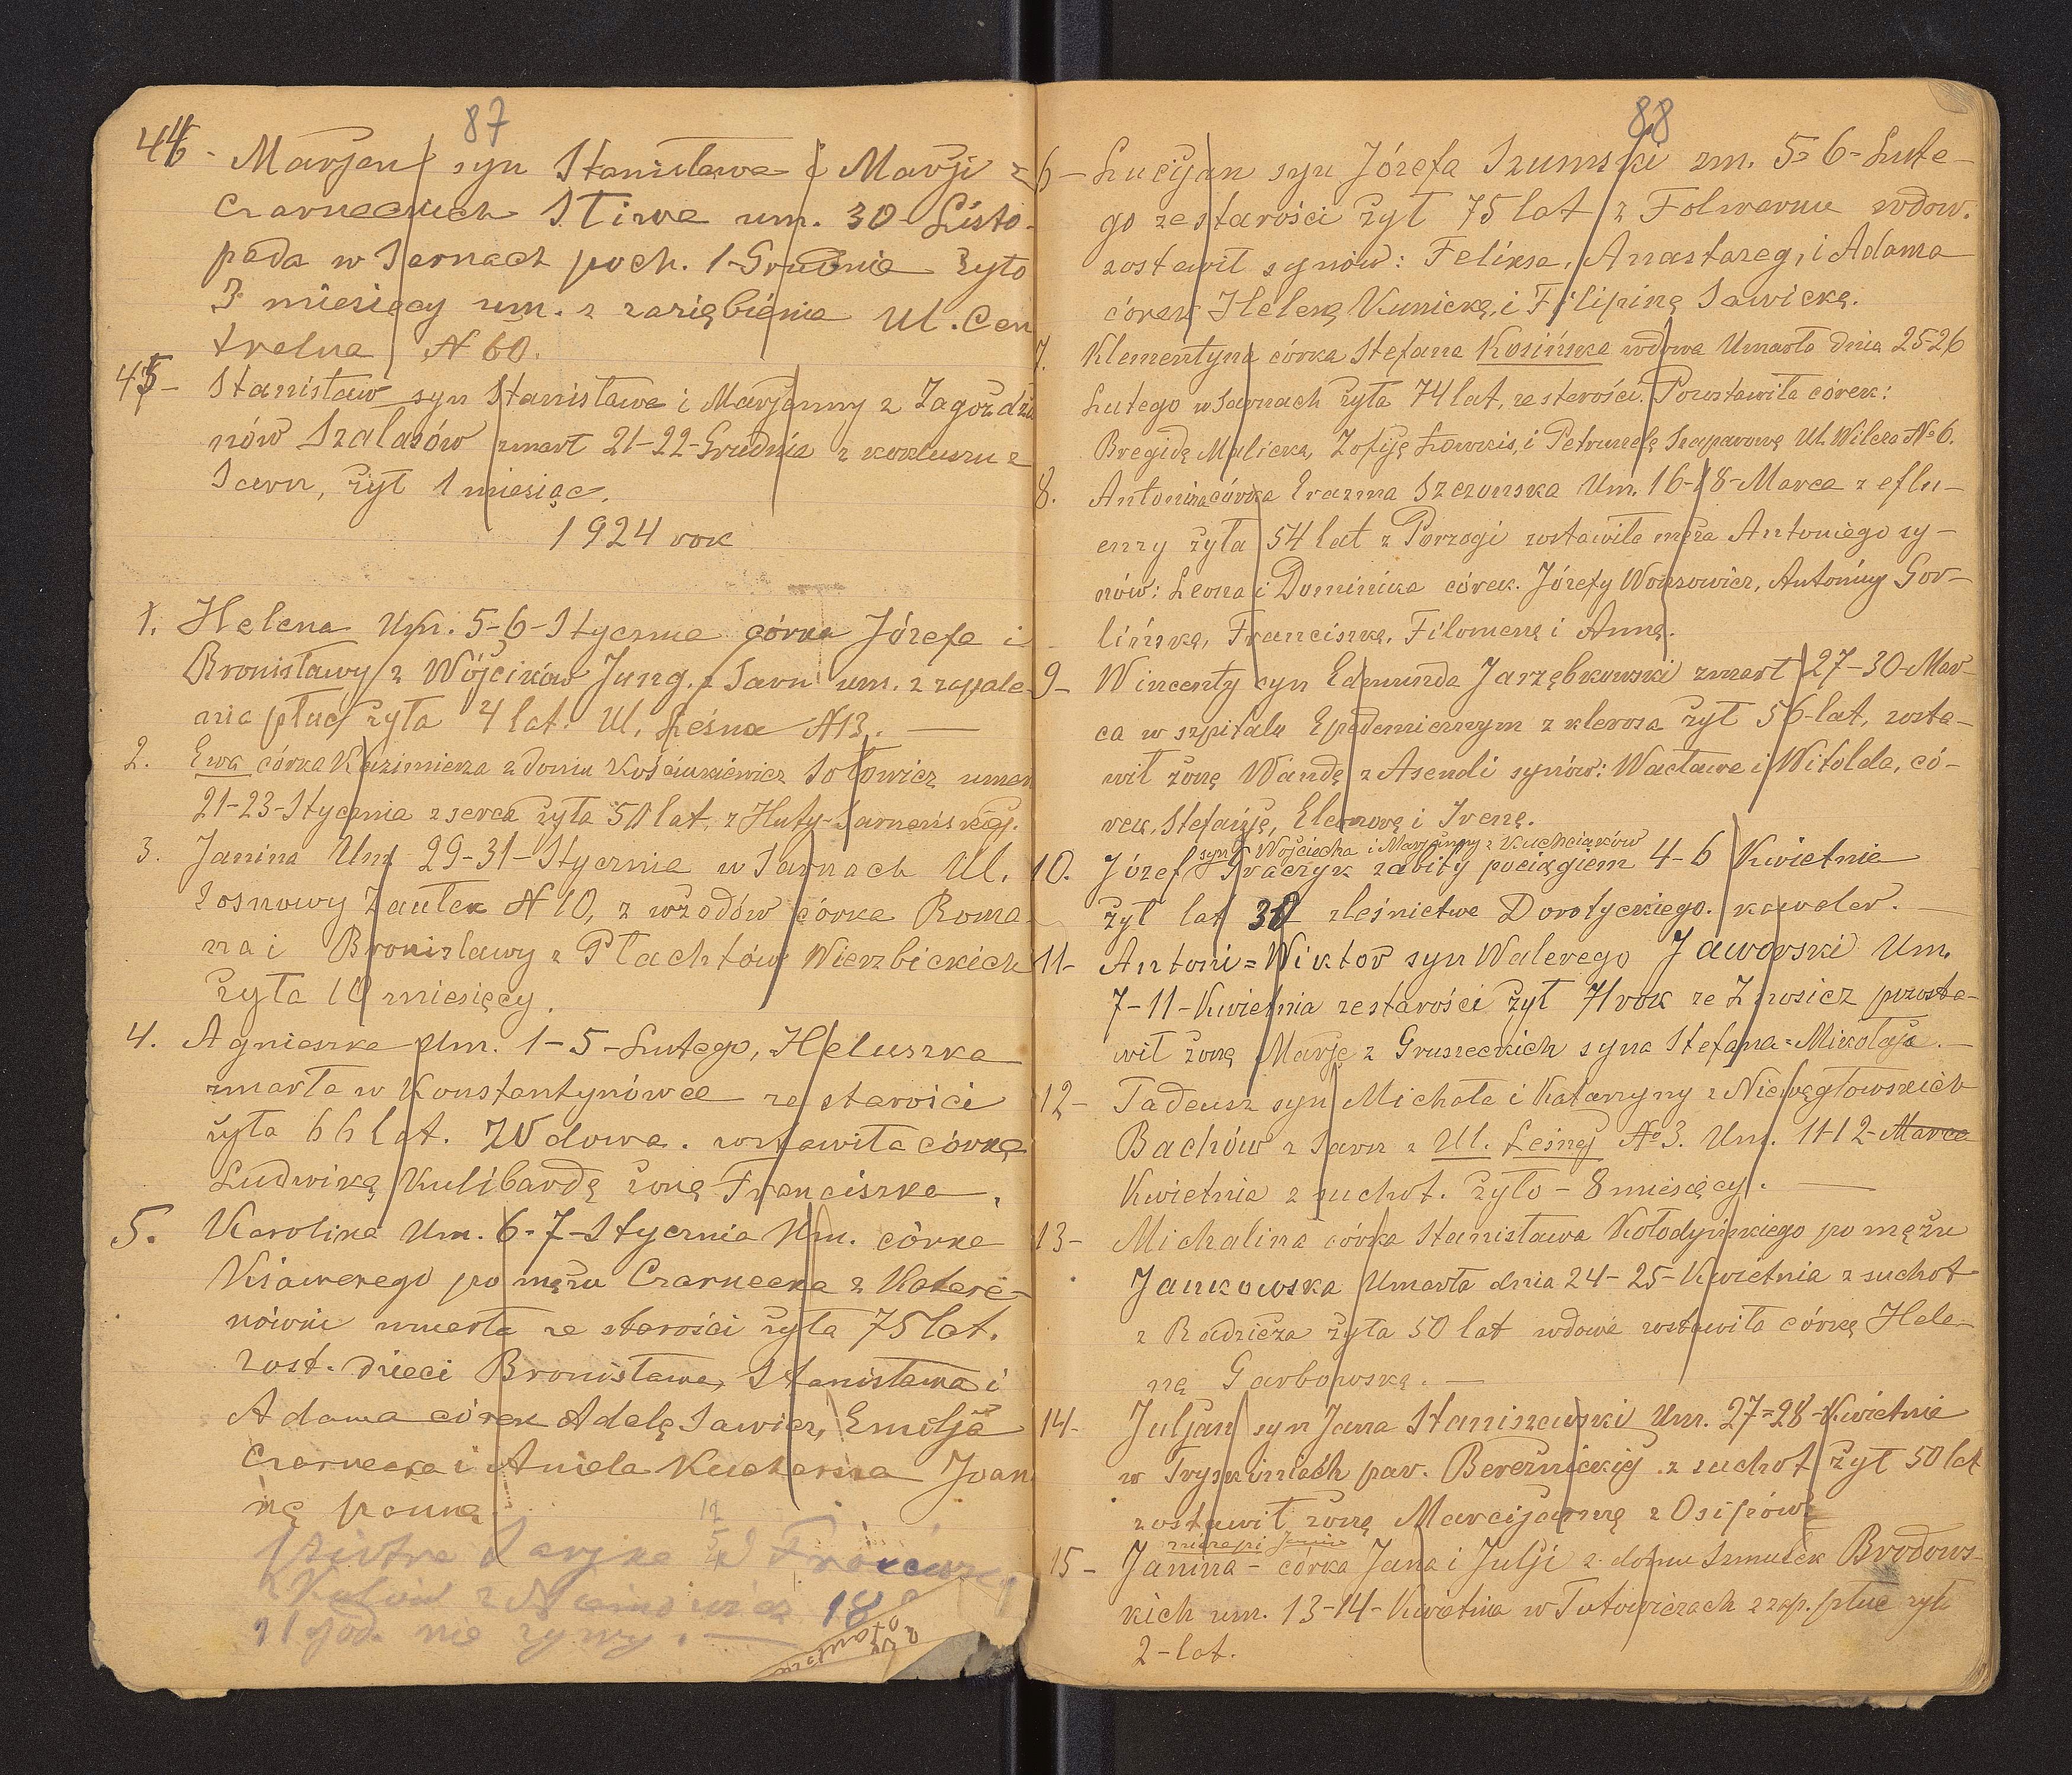 87
44 - Marjan syn Stanisława i Marji z
Czarneckich Stiwe um. 30 - Listo-
pada w Sarnach poch. 1-Grudnia żyło
3 miesięcy um. z zaziębienia Ul. Cen
tralna N 60.
45 - Stanisław syn Stanisława i Marjanny z Zagoździo
nów Szalasów zmarł 21-22-Grudnia z kokluszu z
Sarn, żył 1 miesiąc.
1924 rok
1. Helena Um. 5-6-Stycznia córka Józefa i
Bronisławy z Wójcików Jung. z Sarn um. z zapale-
nia płuc żyła 4 lat. Ul. Leśna N13. —
2. Ewa córka Kazimierza z domu Kościukiewicz Sotowicz umar
21-23-Stycznia z serca żyła 50 lat. z Huty-Sarneńskiej.
3. Janina Um 29-31-Stycznia w Sarnach Ul.
Sosnowy Zaułek N 10, z wrzodów córka Roma
na i Bronisławy z Płachtów Wierzbickich
żyła 10 miesięcy.
4. Agnieszka Um. 1-5-Lutego, Heluszka
zmarła w Konstantynówce ze starości
żyła 66 lat. Wdowa. zostawiła córkę
Ludwiką Kulibardę żoną Franciszka.
5. Karolina Um. 6-7-Stycznia Um. córka
Ksawerego po mężu Czarnecka z Katere-
nówki umarła ze starości żyła 75 lat.
zost. dzieci Bronisława, Stanisława i
Adama córek Adelę Sawicz, Emilja
Czarnecka i Aniela Kucharska Joan
nę panną.
12
18
nie żywy. —
88
6 - Lucijan syn Józefa Szumski zm. 5-6-Lute-
go ze starości żył 75 lat z Folwarku wdow.
zostawił synów: Feliksa, Anastazeg, i Adama
córek Heleną Kunicką, i Filipiną Sawicką.
7. Klementyna córka Stefana Kosińska wdowa Umarła dnia 25-26
Lutego w Sarnach żyła 74 lat, ze starości. Pozostawiła córek:
Bregidę Malicką, Zofiję Łowkis, i Petrunelę Szaparową Ul. Wilcza No 6.
8. Antonina córka Erazma Szczonska Um. 16-18-Marca z eflu-
enzy żyła 54 lat z Porzogi zostawiła męża Antoniego sy-
nów: Leona i Dominika córek. Józefy Wonsowicz, Antoniny Gor-
lińską, Franciszką, Filomeną i Anną.
9 - Wincenty syn Edmunda Jarzębkowski zmarł 27-30-Mar-
ca w szpitalu Epedemicznym z klerosa żył 56-lat, zosta-
wił żonę Wandę z Asendi synów: Wacława i Witolda, có-
rek, Stefanję, Eleonorę i Irenę.
syn Wojciecha i Marjanny z Kuchciaków
10. Józef Traczyk zabity pociągiem 4-6 Kwietnia
żył lat 30 z leśnictwa Dorotyckiego. kawaler. —
11 - Antoni=Wiktor syn Walerego Jaworski Um.
7-11-Kwietnia ze starości żył 71 rok ze Znosicz pozosta-
wił żoną Marję z Gruszeckich syna Stefana=Mikołaja. —
12 - Tadeusz syn Michała i Katarzyny z Niewęgłowskich
Bachów z Sarn z Ul. Leśnej No 3. Um. 11-12-Marca
Kwietnia z suchot. żyło - 8 miesięcy. —
13 - Michalina córka Stanisława Kołodyńskiego po mężu
Jankowska Umarła dnia 24-25-Kwietnia z suchot
z Radzieża żyła 50 lat wdowa zostawiła córkę Hele-
nę Garbowską. —
14 - Juljan syn Jana Staniszewski Um. 27=28-Kwietnia
w Tryskiniach par. Bereźnickiej z suchot żył 50 lat
zostawił żoną Marcijanną z Osipów
15 - Janina - córka Jana i Julji z domu Szmulek Brodows-
kich um. 13-14-Kwietnia w Tutowiczach z zap. płuc żył
2-lat.